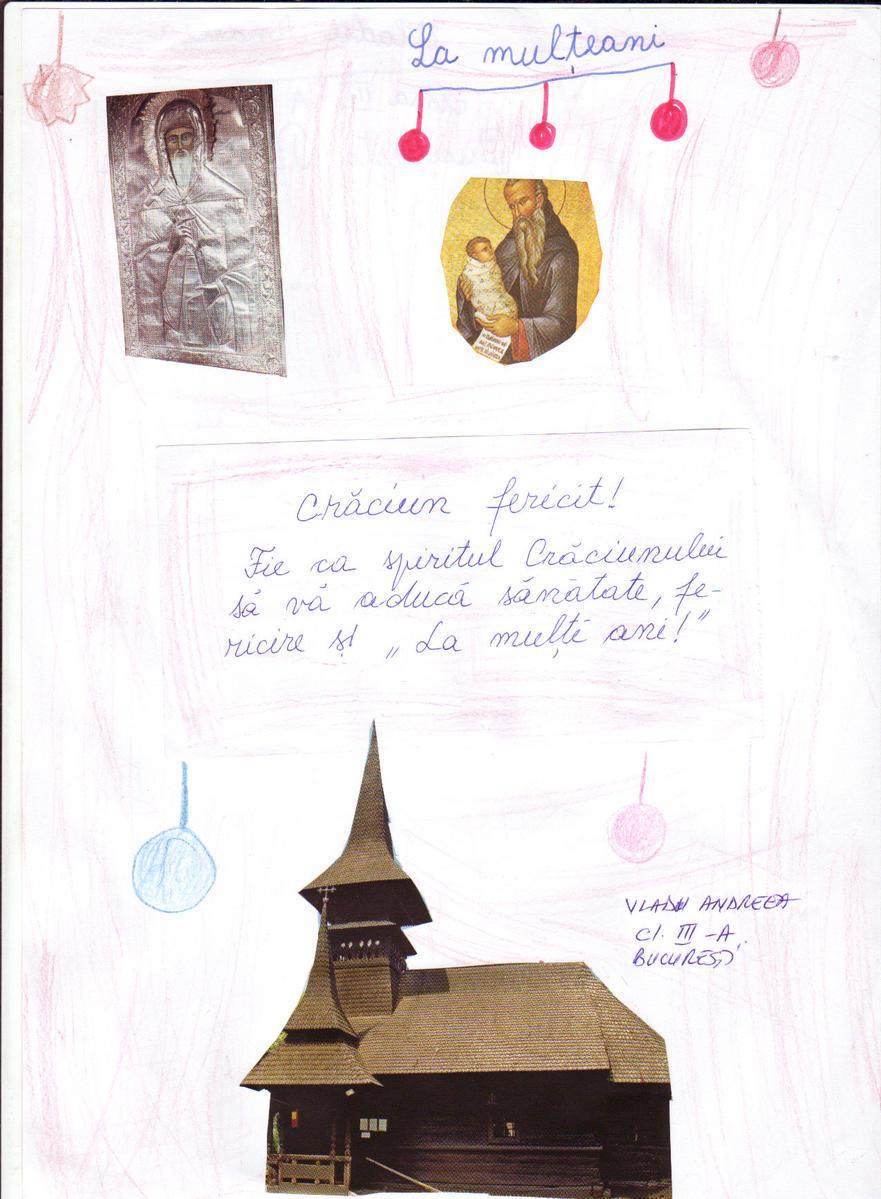 La mulțeani
Crăciun fericit!
Fie ca spiritul Crăciunului
să vă aducă sănătate, fe-
ricire și „La mulți ani!”
VLADU ANDREEA
Cl. III-A
BUCUREȘTI